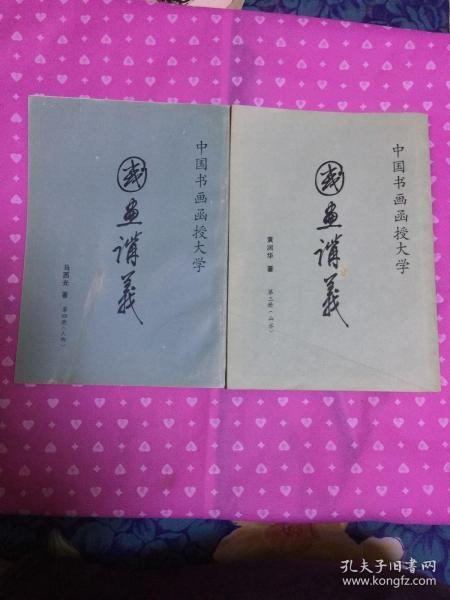 中国书画函授大学
國畫講義
马西光 著
第四册(人物)
中国书画函授大学
國畫講義
黄润华 著
第三册(山水)
孔夫子旧书网
www.kongfz.com